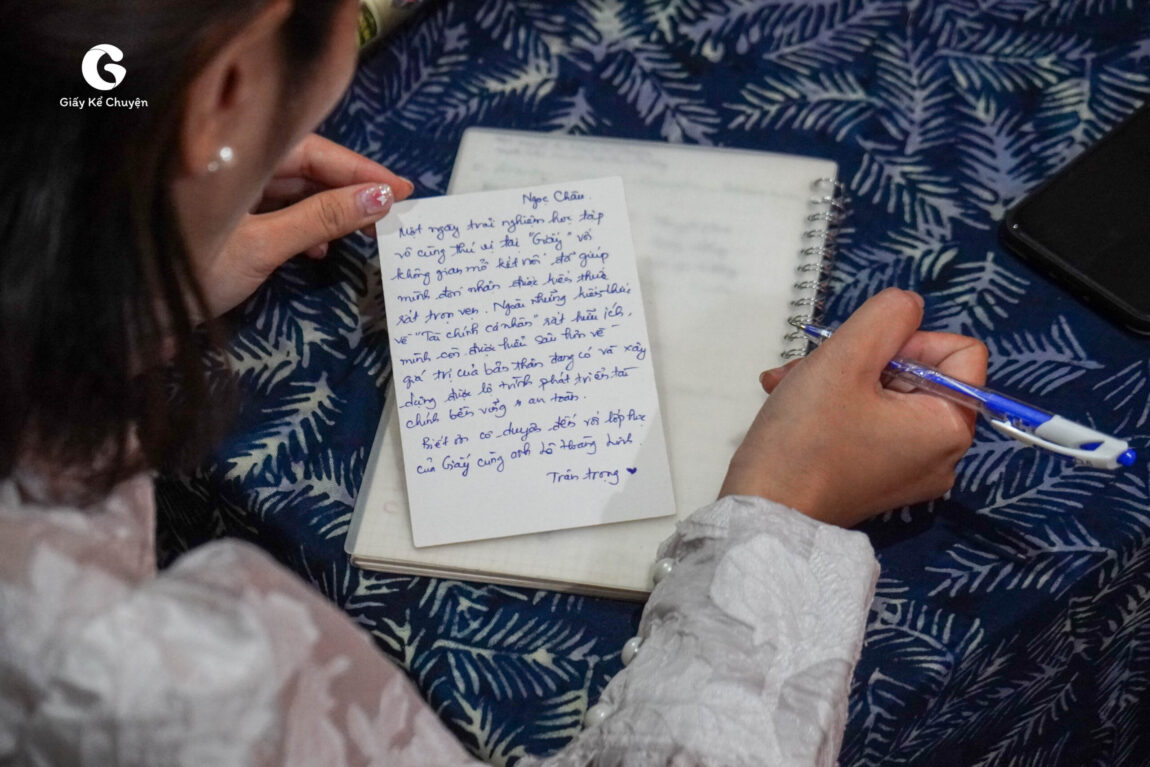 Giấy Kể Chuyện
Ngọc Châu.
Một ngày trải nghiệm học tập
vô cùng thú vị tại "Giấy" với
không gian mở kết nối đã giúp
mình đón nhận được kiến thức
rất trọn vẹn. Ngoài những kiến thức
về "Tài chính cá nhân" rất hữu ích,
mình còn được hiểu sâu hơn về
giá trị của bản thân đang có và xây
dựng được lộ trình phát triển tài
chính bền vững & an toàn.
Biết ơn có duyên đến với lớp học
của Giấy cùng anh Hoàng Linh.
Trân trọng ♥